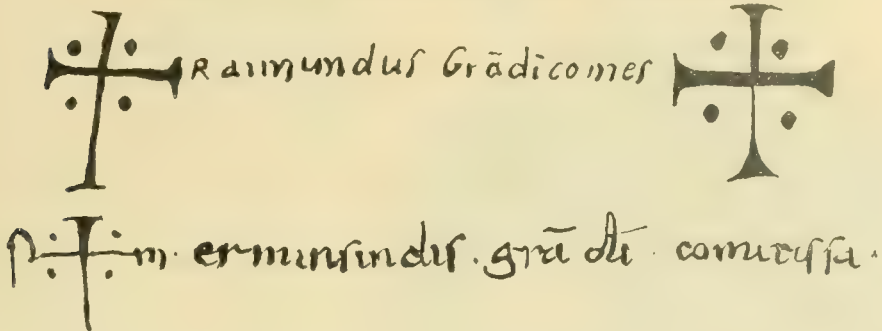 Raimundus Grādi comes
S m. ermensindis. grā dī comitissa.